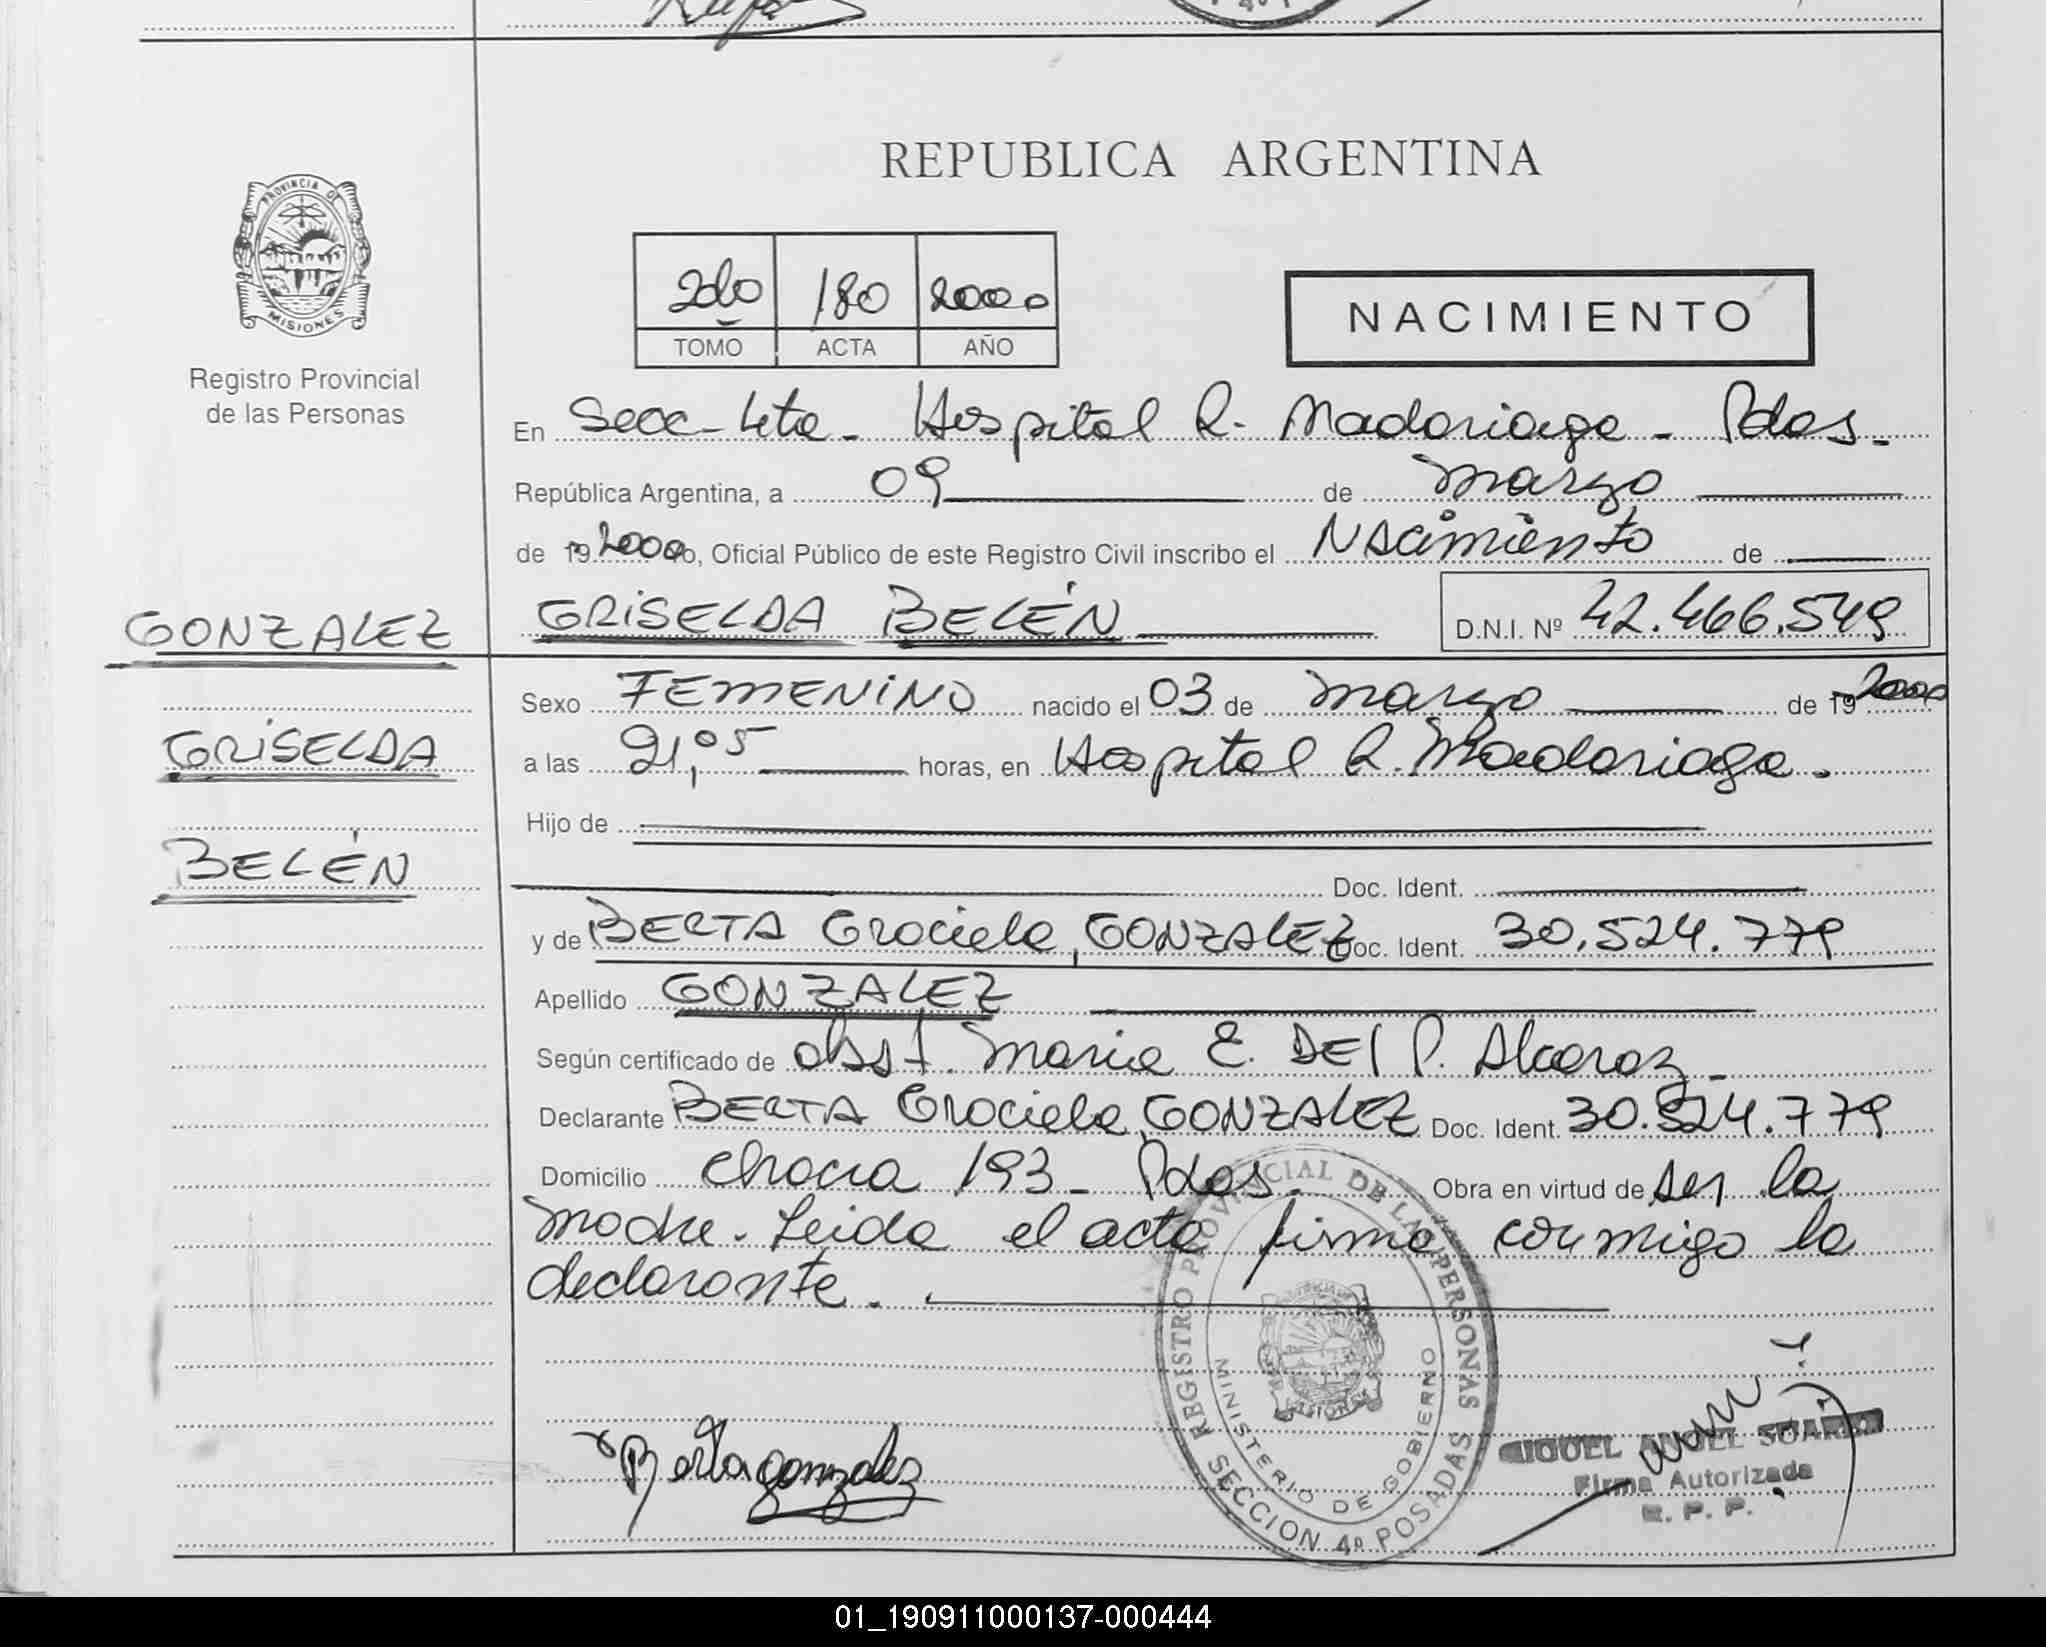 PROVINCIA DE
MISIONES
Registro Provincial
de las Personas
REPUBLICA ARGENTINA
2do 180 2000
TOMO ACTA AÑO
NACIMIENTO
En Secc-4ta- Hospital R. Madariaga - Pdas.
República Argentina, a 09 de Marzo
de 19 2000, Oficial Público de este Registro Civil inscribo el Nacimiento de
GONZALEZ GRISELDA BELÉN D.N.I. Nº 42.466.549
Sexo FEMENINO nacido el 03 de Marzo de 19 2000
GRISELDA
a las 21,05 horas, en Hospital R. Madariaga.
Hijo de
BELÉN
Doc. Ident.
y de BERTA Graciela, GONZALEZ Doc. Ident. 30.524.779
Apellido GONZALEZ
Según certificado de Obst. Maria E. DEl P. Alcaraz -
Declarante BERTA Graciela, GONZALEZ Doc. Ident. 30.524.779
Domicilio Chacra 193 - Pdas. Obra en virtud de ser la
madre. Leida el acta firma conmigo la
declarante.
REGISTRO PROVINCIAL DE LAS PERSONAS
MINISTERIO DE GOBIERNO
SECCION 4º POSADAS
Berta gonzalez
MIGUEL ANGEL SOAREZ
Firma Autorizada
R. P. P.
01_190911000137-000444